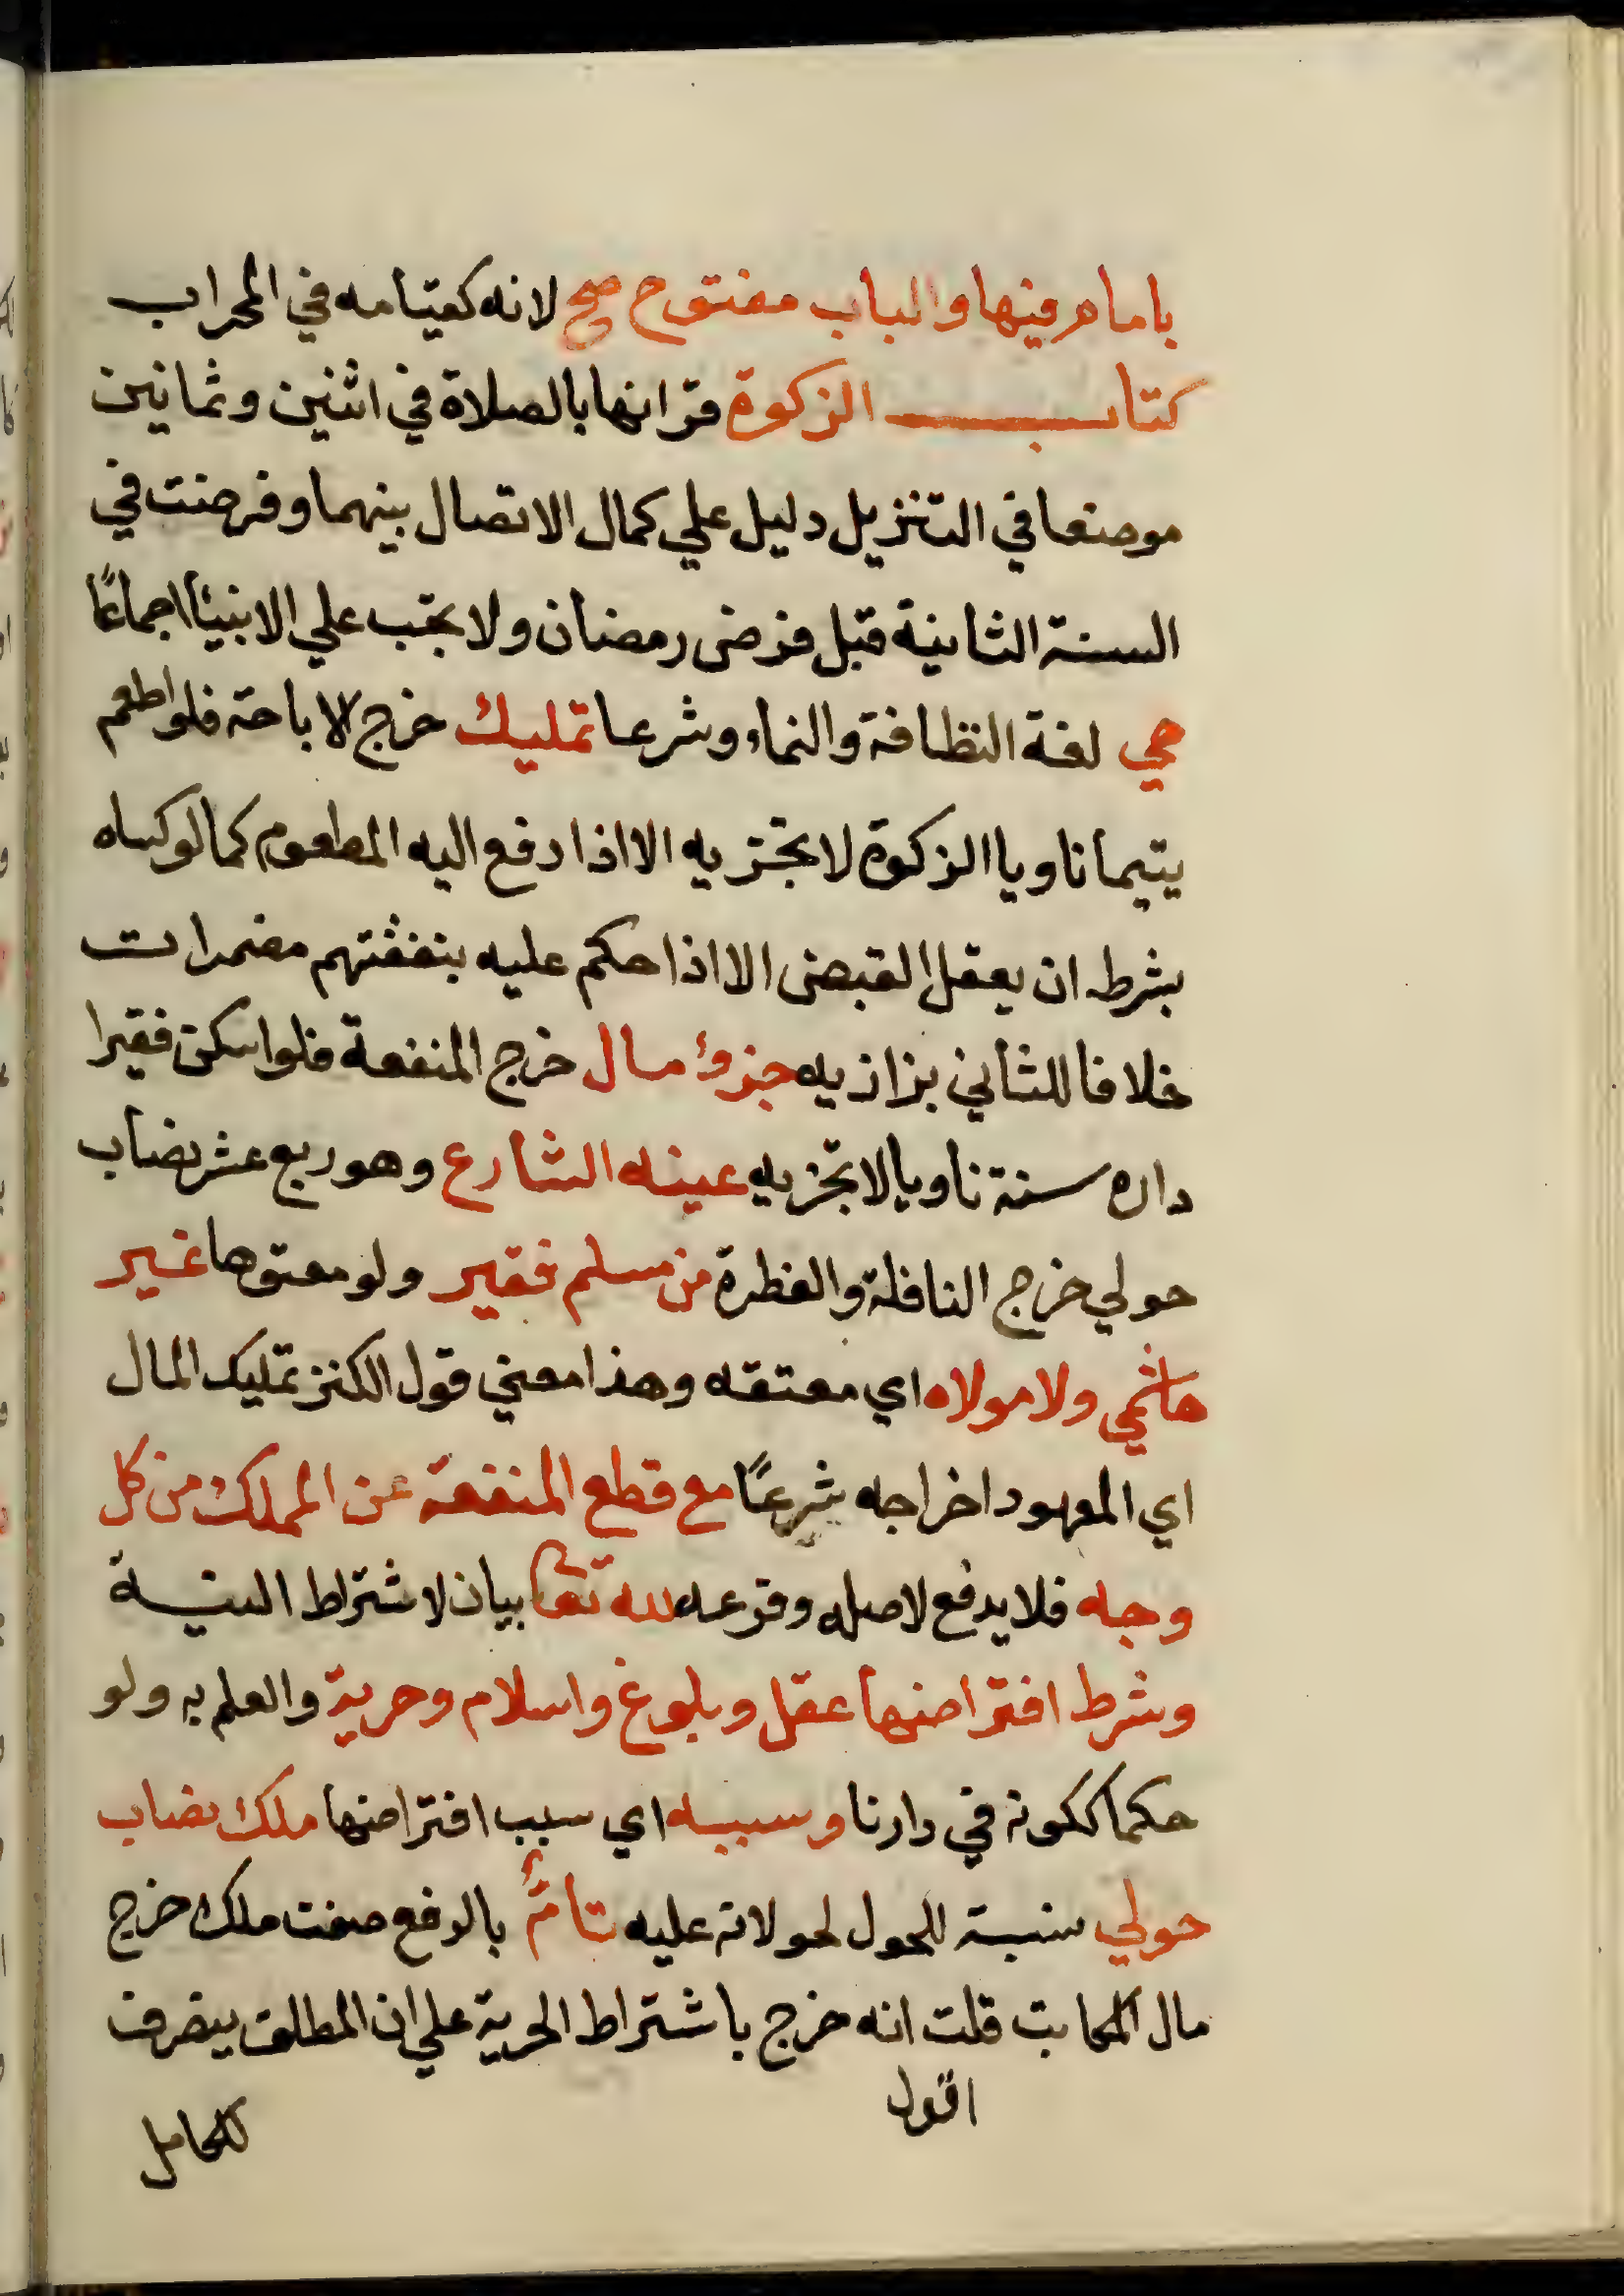 بامام فيها والباب مفتوح صح لانه كقيامه في المحراب
كتاب الزكوة قرانها بالصلاة في اثنين وثمانين
موضعا في التنزيل دليل علي كمال الاتصال بينهما وفرضت في
السنة الثانية قبل فرض رمضان ولا تجب علي الانبيا اجماعًا
هي لغة النظافة والنماء وشرعا تمليك خرج الاباحة فلو اطعم
يتيما ناويا الزكوة لا تجزيه الا اذا دفع اليه المطعوم كما لو كساه
بشرط ان يعقل القبض الا اذا حكم عليه بنفقتهم مضمرات
خلافا للثاني بزازيه جزؤ مال خرج المنفعة فلو اسكن فقيرا
داره سنة ناويا لا تجزيه عينه الشارع وهو ربع عشر نصاب
حولي خرج النافلة والفطرة من مسلم فقير ولو معتوها غير
هاشمي ولا مولاه اي معتقه وهذا معني قول الكنز تمليك المال
اي المعهود اخراجه شرعًا مع قطع المنفعة عن المملك من كل
وجه فلا يدفع لاصله وفرعه لله تعا بيان لاشتراط النية
وشرط افتراضها عقل وبلوغ واسلام وحرية والعلم به ولو
حكما ككونه في دارنا وسببه اي سبب افتراضها ملك نصاب
حولي نسبة للحول لحولانه عليه تامٌ بالرفع صفت ملك خرج
مال المكاتب قلت انه خرج باشتراط الحرية علي ان المطلق ينصرف
اقول
للكامل